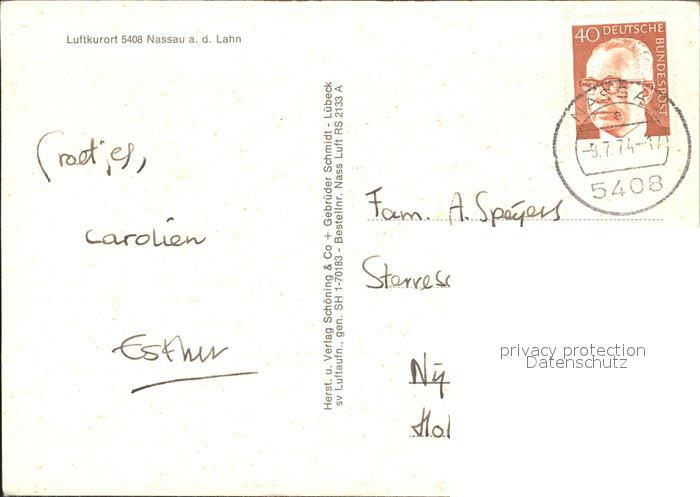 Luftkurort 5408 Nassau a. d. Lahn
40 DEUTSCHE BUNDESPOST
NASSAU
e
-9.7.74-17
5408
Groetjes,
Carolien
Esther
Herst. u. Verlag Schöning & Co + Gebrüder Schmidt - Lübeck
sv Luftaufn., gen. SH 1-70183 - Bestellnr. Nass Luft RS 2133 A
Fam. A. Speyers
Sterresc
Nij
Hol
privacy protection
Datenschutz